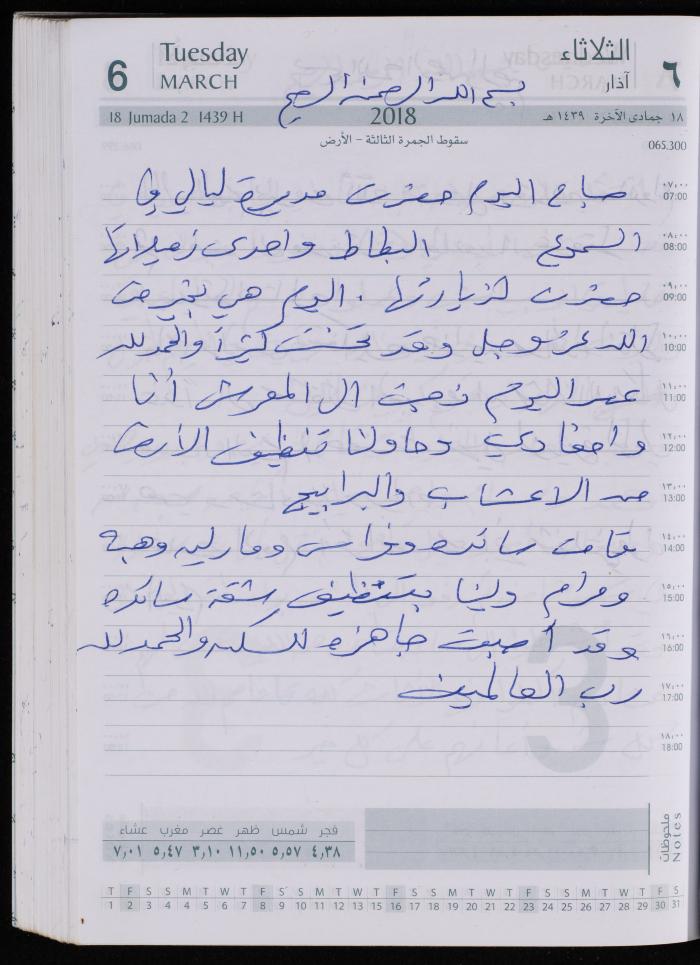 6 Tuesday MARCH الثلاثاء آذار ٦
بسم الله الرحمن الرحيم
18 Jumada 2 1439 H 2018 ١٨ جمادى الآخرة ١٤٣٩ هـ
سقوط الجمرة الثالثة - الأرض 065.300
صباح اليوم حضرت مديرة ليالي في ٠٧:٠٠ 07:00
السموع البطاط واحدى زميلاتها ٠٨:٠٠ 08:00
حضرت لزيارتها . اليوم هي بخير من ٠٩:٠٠ 09:00
الله عز وجل وقد تحسنت كثيراً والحمد لله ١٠:٠٠ 10:00
عصر اليوم ذهبت ال المعرش أنا ١١:٠٠ 11:00
واحفادي وحاولنا تنظيف الأرض ١٢:٠٠ 12:00
من الاعشاب والبرابيج ١٣:٠٠ 13:00
قامت وفراس ومارلين وهبه ١٤:٠٠ 14:00
ومرام ولينا بتنظيف شقة ١٥:٠٠ 15:00
وقد أصبحت جاهزه للسكن والحمد لله ١٦:٠٠ 16:00
رب العالمين ١٧:٠٠ 17:00
١٨:٠٠ 18:00
فجر شمس ظهر عصر مغرب عشاء
٤,٣٨ ٥,٥٧ ١١,٥٠ ٣,١٠ ٥,٤٧ ٧,٠١
ملحوظات Notes
T F S S M T W T F S S M T W T F S S M T W T F S S M T W T F S
1 2 3 4 4 5 6 7 8 9 10 11 12 13 15 16 17 18 19 20 21 22 23 24 25 26 27 28 29 30 31